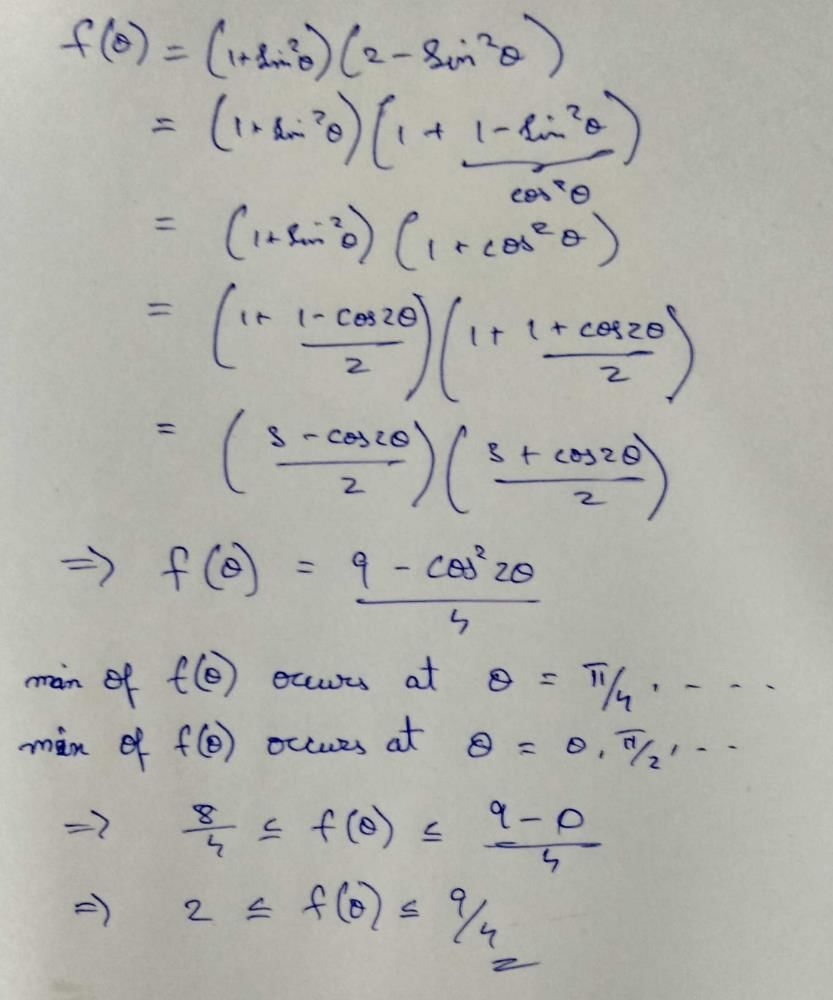 f(θ) = (1+sin²θ)(2-sin²θ)
= (1+sin²θ)(1 + 1-sin²θ)
cos²θ
= (1+sin²θ)(1+cos²θ)
= (1+ 1-cos2θ/2)(1+ 1+cos2θ/2)
= (3-cos2θ/2)(3+cos2θ/2)
=> f(θ) = 9-cos²2θ/4
max of f(θ) occurs at θ = π/4, - - -
min of f(θ) occurs at θ = 0, π/2, - -
=> 8/4 ≤ f(θ) ≤ 9-0/4
=> 2 ≤ f(θ) ≤ 9/4